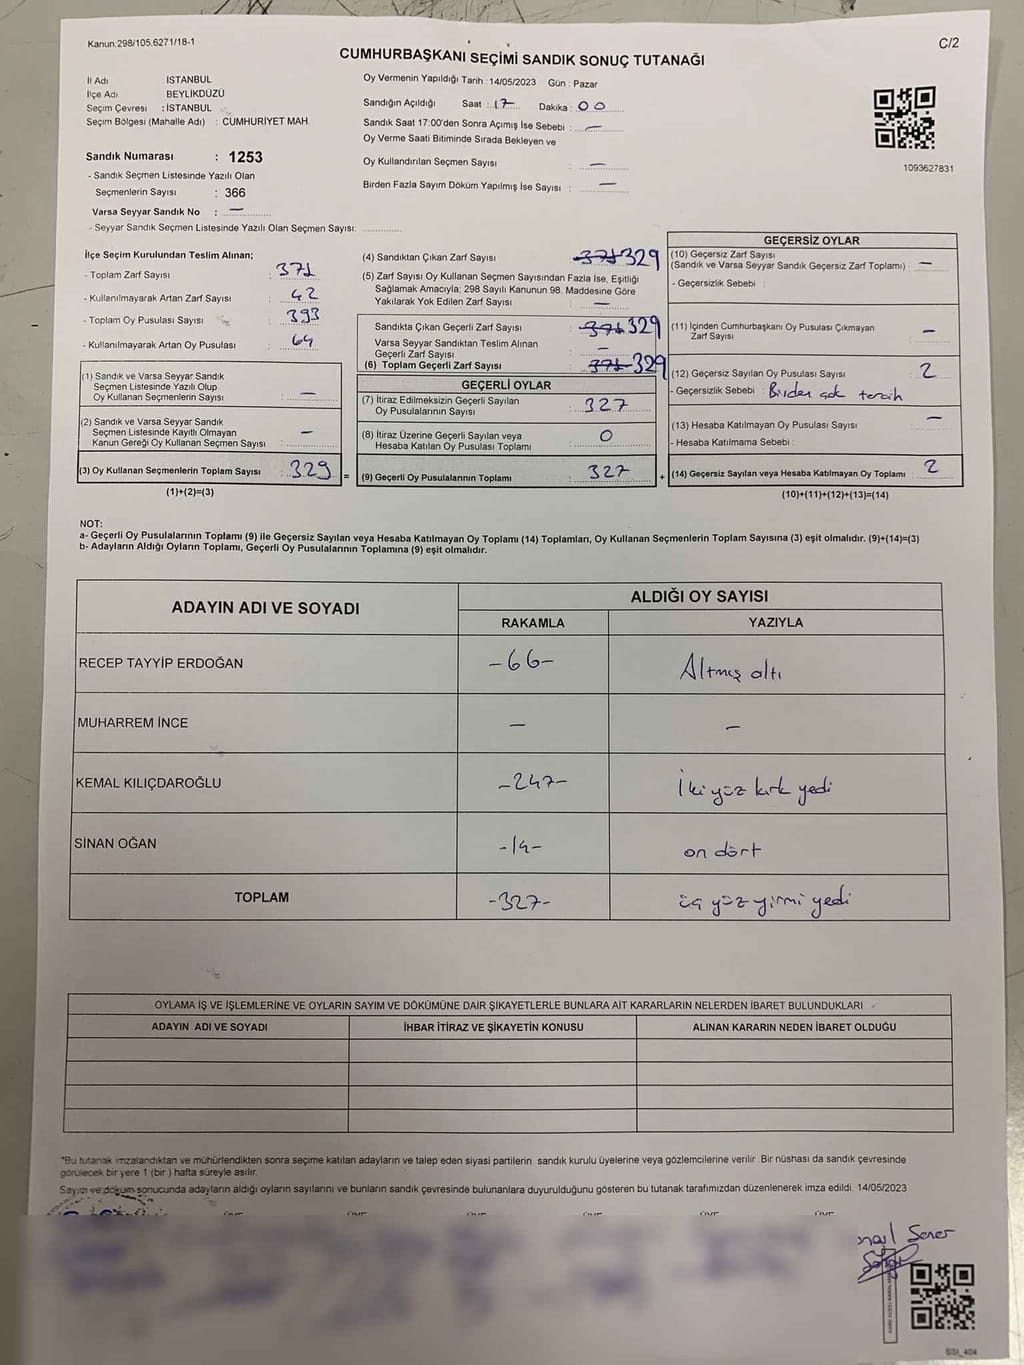 Kanun.298/105.6271/18-1
C/2
CUMHURBAŞKANI SEÇİMİ SANDIK SONUÇ TUTANAĞI
İl Adı : İSTANBUL
İlçe Adı : BEYLİKDÜZÜ
Seçim Çevresi : İSTANBUL
Seçim Bölgesi (Mahalle Adı) : CUMHURİYET MAH.
Sandık Numarası : 1253
- Sandık Seçmen Listesinde Yazılı Olan
Seçmenlerin Sayısı : 366
Varsa Seyyar Sandık No : —
- Seyyar Sandık Seçmen Listesinde Yazılı Olan Seçmen Sayısı:
Oy Vermenin Yapıldığı Tarih :14/05/2023 Gün : Pazar
Sandığın Açıldığı Saat : 17 Dakika : 00
Sandık Saat 17:00'den Sonra Açımış İse Sebebi : —
Oy Verme Saati Bitiminde Sırada Bekleyen ve
Oy Kullandırılan Seçmen Sayısı : —
Birden Fazla Sayım Döküm Yapılmış İse Sayısı : —
1093627831
İlçe Seçim Kurulundan Teslim Alınan;
- Toplam Zarf Sayısı : 371
- Kullanılmayarak Artan Zarf Sayısı : 42
- Toplam Oy Pusulası Sayısı : 393
- Kullanılmayarak Artan Oy Pusulası : 64
(1) Sandık ve Varsa Seyyar Sandık
Seçmen Listesinde Yazılı Olup
Oy Kullanan Seçmenlerin Sayısı : —
(2) Sandık ve Varsa Seyyar Sandık
Seçmen Listesinde Kayıtlı Olmayan
Kanun Gereği Oy Kullanan Seçmen Sayısı : —
(3) Oy Kullanan Seçmenlerin Toplam Sayısı : 329 =
(1)+(2)=(3)
(4) Sandıktan Çıkan Zarf Sayısı : 371 329
(5) Zarf Sayısı Oy Kullanan Seçmen Sayısından Fazla İse, Eşitliği
Sağlamak Amacıyla; 298 Sayılı Kanunun 98. Maddesine Göre
Yakılarak Yok Edilen Zarf Sayısı : —
Sandıkta Çıkan Geçerli Zarf Sayısı : 371 329
Varsa Seyyar Sandıktan Teslim Alınan
Geçerli Zarf Sayısı : —
(6) Toplam Geçerli Zarf Sayısı : 371 329
GEÇERLİ OYLAR
(7) İtiraz Edilmeksizin Geçerli Sayılan
Oy Pusulalarının Sayısı : 327
(8) İtiraz Üzerine Geçerli Sayılan veya
Hesaba Katılan Oy Pusulası Toplamı : 0
(9) Geçerli Oy Pusulalarının Toplamı : 327 +
GEÇERSİZ OYLAR
(10) Geçersiz Zarf Sayısı
(Sandık ve Varsa Seyyar Sandık Geçersiz Zarf Toplamı) : —
- Geçersizlik Sebebi :
(11) İçinden Cumhurbaşkanı Oy Pusulası Çıkmayan
Zarf Sayısı : —
(12) Geçersiz Sayılan Oy Pusulası Sayısı : 2
- Geçersizlik Sebebi : Birden çok tercih
(13) Hesaba Katılmayan Oy Pusulası Sayısı : —
- Hesaba Katılmama Sebebi :
(14) Geçersiz Sayılan veya Hesaba Katılmayan Oy Toplamı : 2
(10)+(11)+(12)+(13)=(14)
NOT:
a- Geçerli Oy Pusulalarının Toplamı (9) ile Geçersiz Sayılan veya Hesaba Katılmayan Oy Toplamı (14) Toplamları, Oy Kullanan Seçmenlerin Toplam Sayısına (3) eşit olmalıdır. (9)+(14)=(3)
b- Adayların Aldığı Oyların Toplamı, Geçerli Oy Pusulalarının Toplamına (9) eşit olmalıdır.
ADAYIN ADI VE SOYADI
ALDIĞI OY SAYISI
RAKAMLA YAZIYLA
RECEP TAYYİP ERDOĞAN -66- Altmış altı
MUHARREM İNCE — —
KEMAL KILIÇDAROĞLU -247- İki yüz kırk yedi
SİNAN OĞAN -14- on dört
TOPLAM -327- üç yüz yirmi yedi
OYLAMA İŞ VE İŞLEMLERİNE VE OYLARIN SAYIM VE DÖKÜMÜNE DAİR ŞİKAYETLERLE BUNLARA AİT KARARLARIN NELERDEN İBARET BULUNDUKLARI
ADAYIN ADI VE SOYADI İHBAR İTİRAZ VE ŞİKAYETİN KONUSU ALINAN KARARIN NEDEN İBARET OLDUĞU
*Bu tutanak imzalandıktan ve mühürlendikten sonra seçime katılan adayların ve talep eden siyasi partilerin sandık kurulu üyelerine veya gözlemcilerine verilir. Bir nüshası da sandık çevresinde
görülecek bir yere 1 (bir) hafta süreyle asılır.
Sayım ve döküm sonucunda adayların aldığı oyların sayılarını ve bunların sandık çevresinde bulunanlara duyurulduğunu gösteren bu tutanak tarafımızdan düzenlenerek imza edildi. 14/05/2023
Sener
SSI_404